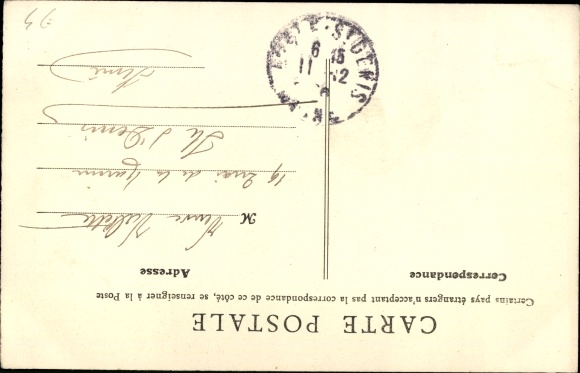 CARTE POSTALE
Certains pays étrangers n'acceptant pas la correspondance de ce côté, se renseigner à la Poste
Correspondance
Adresse
M
19 Quai de la Marine
Ile St Denis
Seine
ILE-ST-DENIS
6 15
11 -12
SEINE